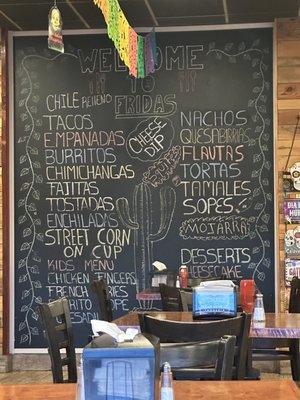 WELCOME
TO
FRIDAS
CHILE RELLENO
TACOS
EMPANADAS
BURRITOS
CHIMICHANGAS
FAJITAS
TOSTADAS
ENCHILADAS
STREET CORN
ON CUP
KIDS MENU
CHICKEN FINGERS
CHEESE
DIP
NACHOS
QUESABIRRAS
FLAUTAS
TORTAS
TAMALES
SOPES
MOJARRA
DESSERTS
CHEESECAKE